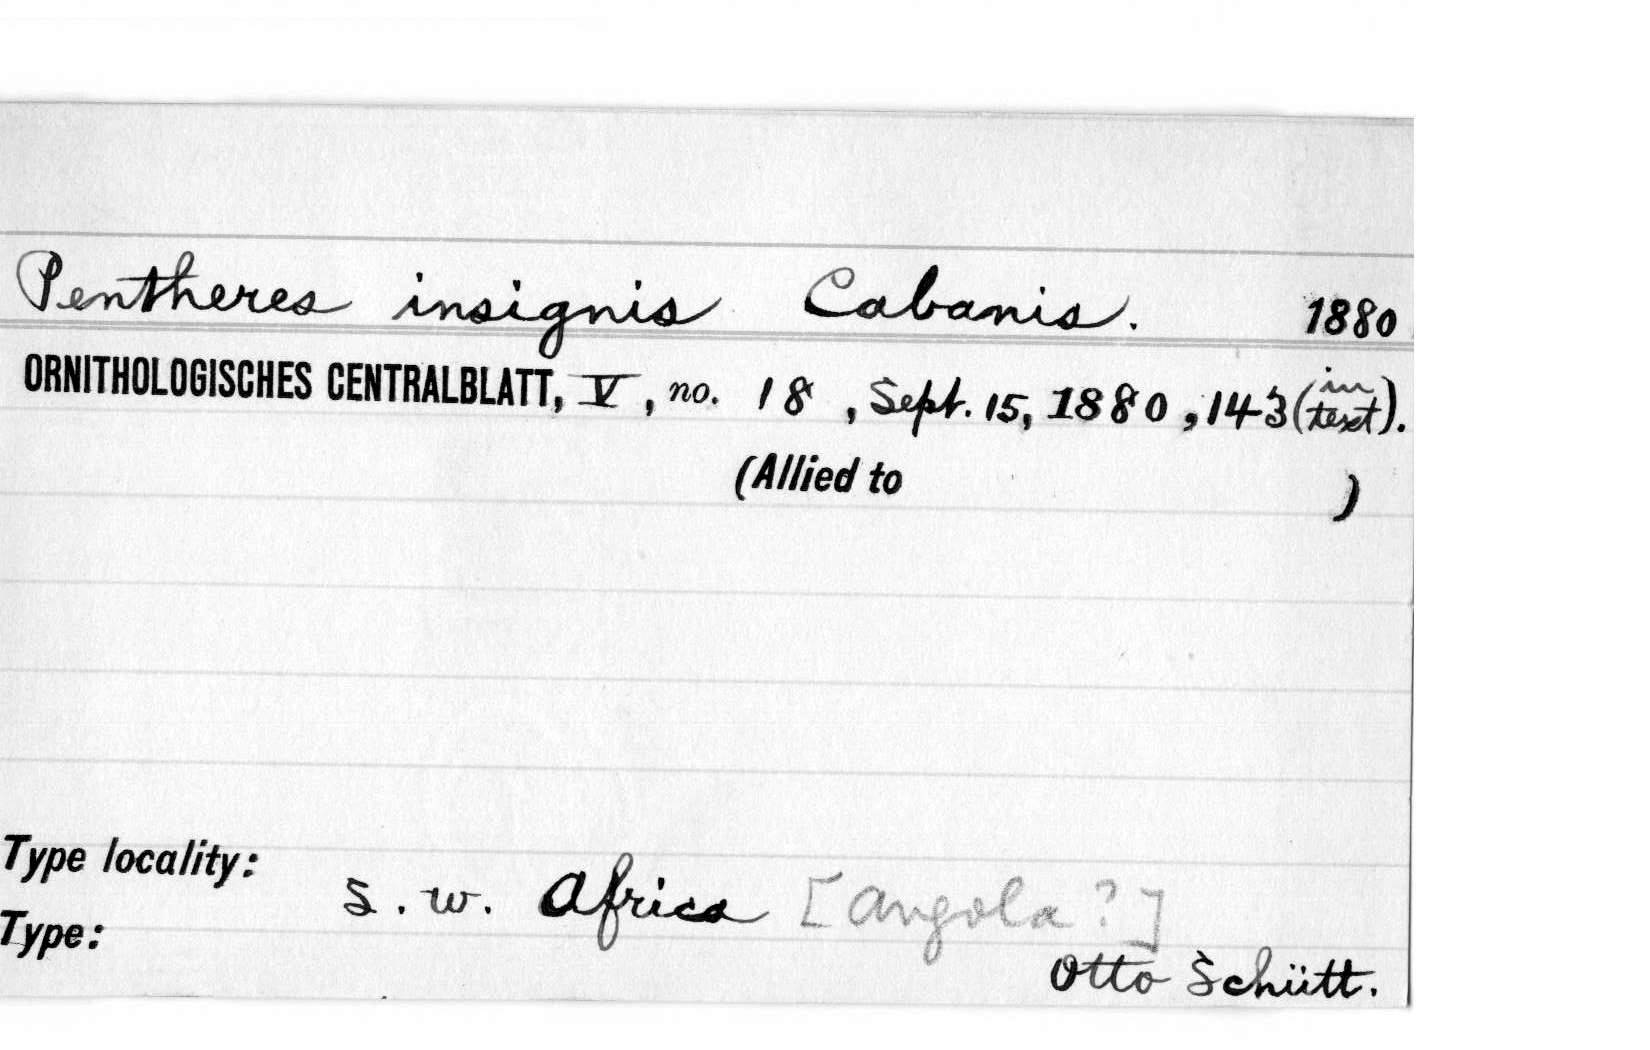 Pentheres insignis Cabanis. 1880
ORNITHOLOGISCHES CENTRALBLATT, V, no. 18, Sept. 15, 1880, 143 (in text).
(Allied to )
Type locality: S. W. Africa [Angola?]
Type:
Otto Schütt.